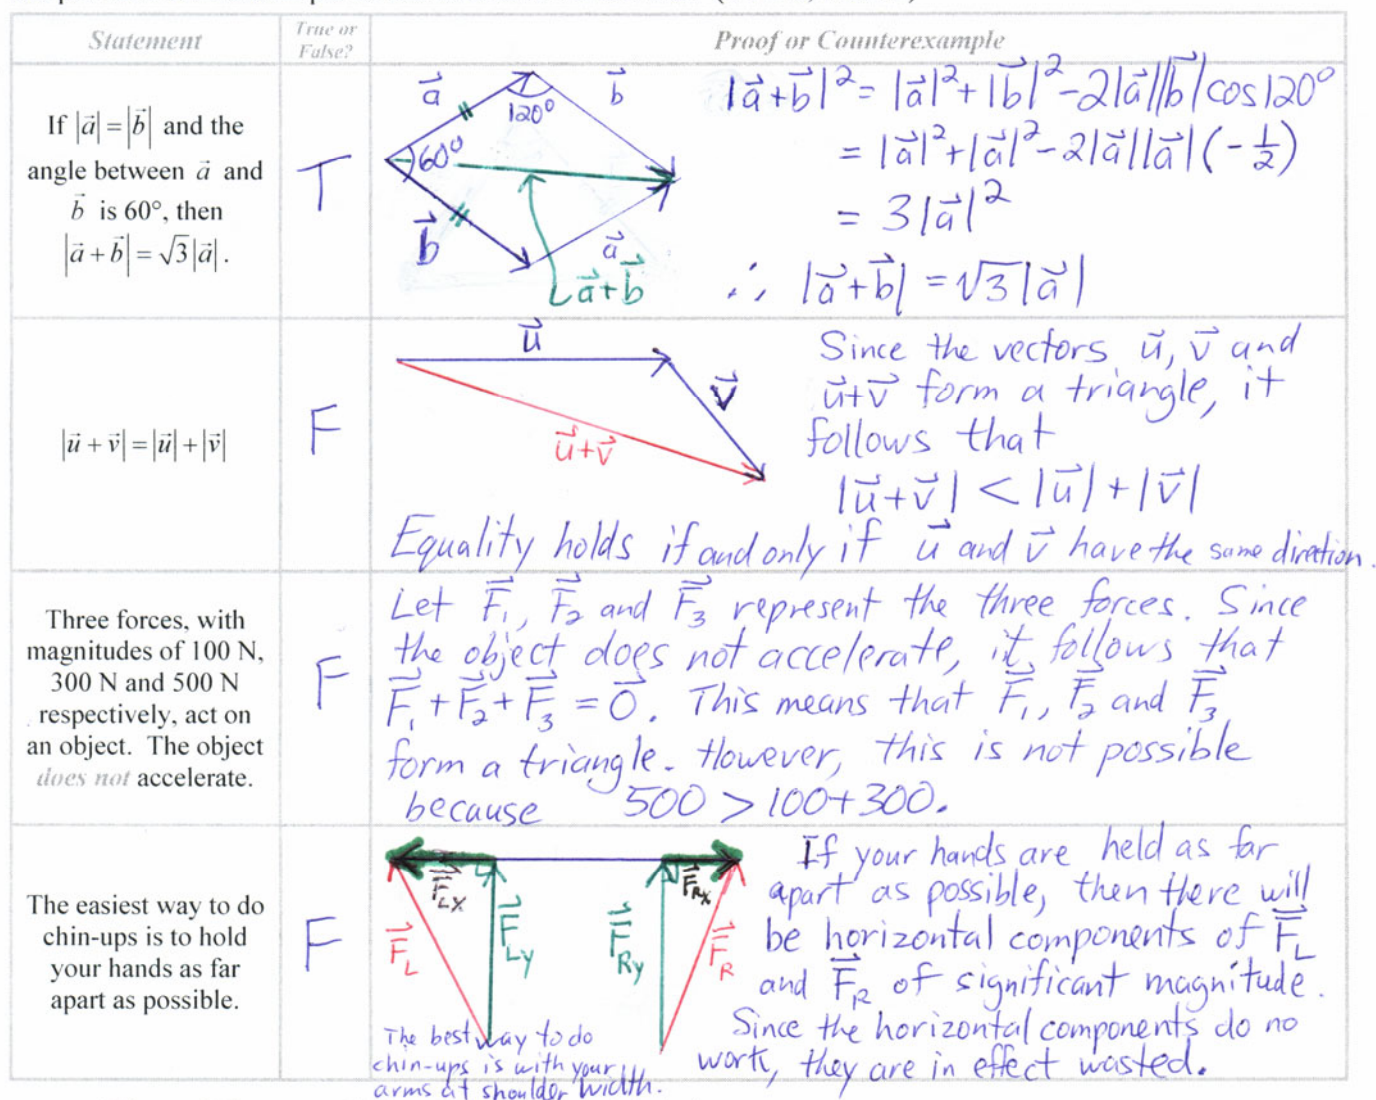 Statement
True or
False?
Proof or Counterexample
If |a⃗| = |b⃗| and the
angle between a⃗ and
b⃗ is 60°, then
|a⃗ + b⃗| = √3 |a⃗|.
T
a⃗
b⃗
120°
60°
b⃗
a⃗
a⃗+b⃗
|a⃗+b⃗|² = |a⃗|²+|b⃗|²-2|a⃗||b⃗|cos120°
= |a⃗|²+|a⃗|²-2|a⃗||a⃗|(-1/2)
= 3|a⃗|²
∴ |a⃗+b⃗| = √3|a⃗|
|u⃗ + v⃗| = |u⃗| + |v⃗|
F
u⃗
v⃗
u⃗+v⃗
Since the vectors u⃗, v⃗ and
u⃗+v⃗ form a triangle, it
follows that
|u⃗+v⃗| < |u⃗|+|v⃗|
Equality holds if and only if u⃗ and v⃗ have the same direction.
Three forces, with
magnitudes of 100 N,
300 N and 500 N
respectively, act on
an object. The object
does not accelerate.
F
Let F⃗₁, F⃗₂ and F⃗₃ represent the three forces. Since
the object does not accelerate, it follows that
F⃗₁+F⃗₂+F⃗₃ = 0⃗. This means that F⃗₁, F⃗₂ and F⃗₃
form a triangle. However, this is not possible
because 500 > 100+300.
The easiest way to do
chin-ups is to hold
your hands as far
apart as possible.
F
F⃗LX
F⃗RX
F⃗L
F⃗Ly
F⃗Ry
F⃗R
The best way to do
chin-ups is with your
arms at shoulder width.
If your hands are held as far
apart as possible, then there will
be horizontal components of F⃗L
and F⃗R of significant magnitude.
Since the horizontal components do no
work, they are in effect wasted.